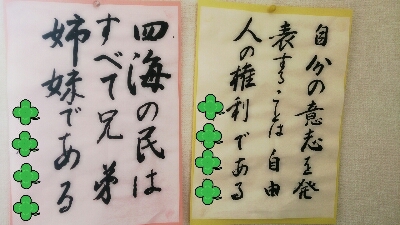 自分の意志を発
表することは自由
人の権利である
四海の民は
すべて兄弟
姉妹である